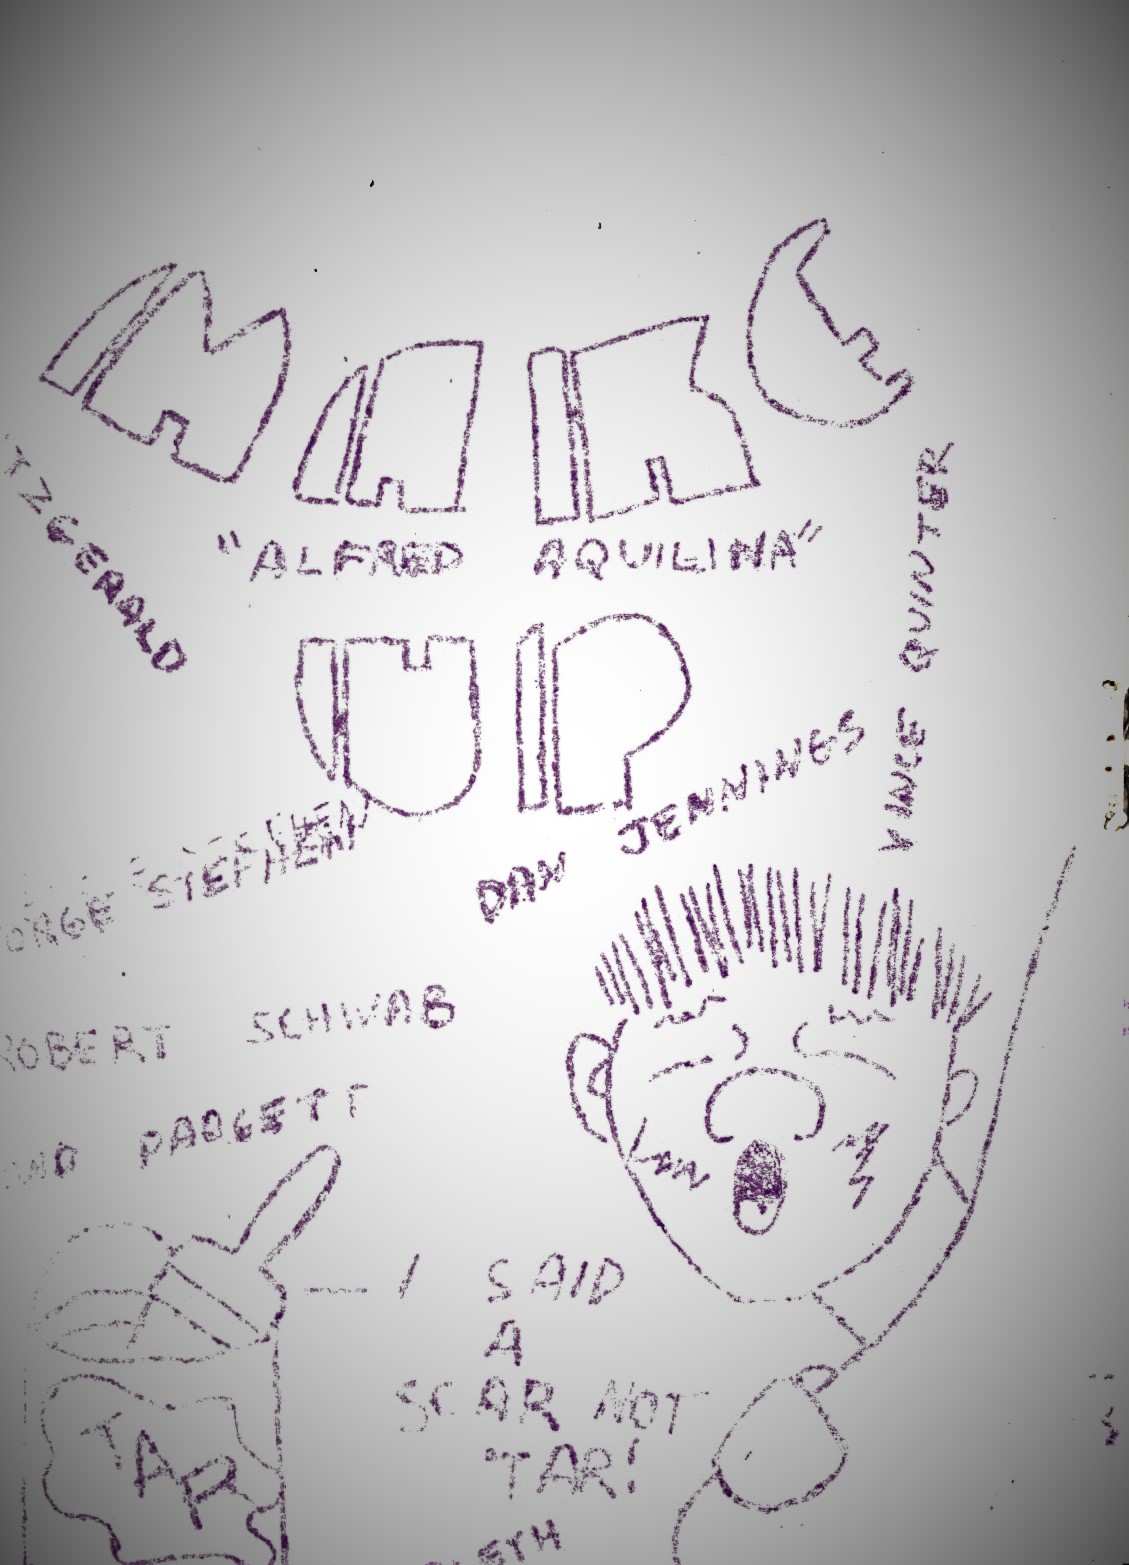 MAKE
TZGERALD
"ALFRED AQUILINA"
VINCE QUINTER
UP
DAN JENNINGS
ORGE STEPHEN
ROBERT SCHWAB
PADGETT
I SAID
A
SCAR NOT
TAR!
TAR
ETH